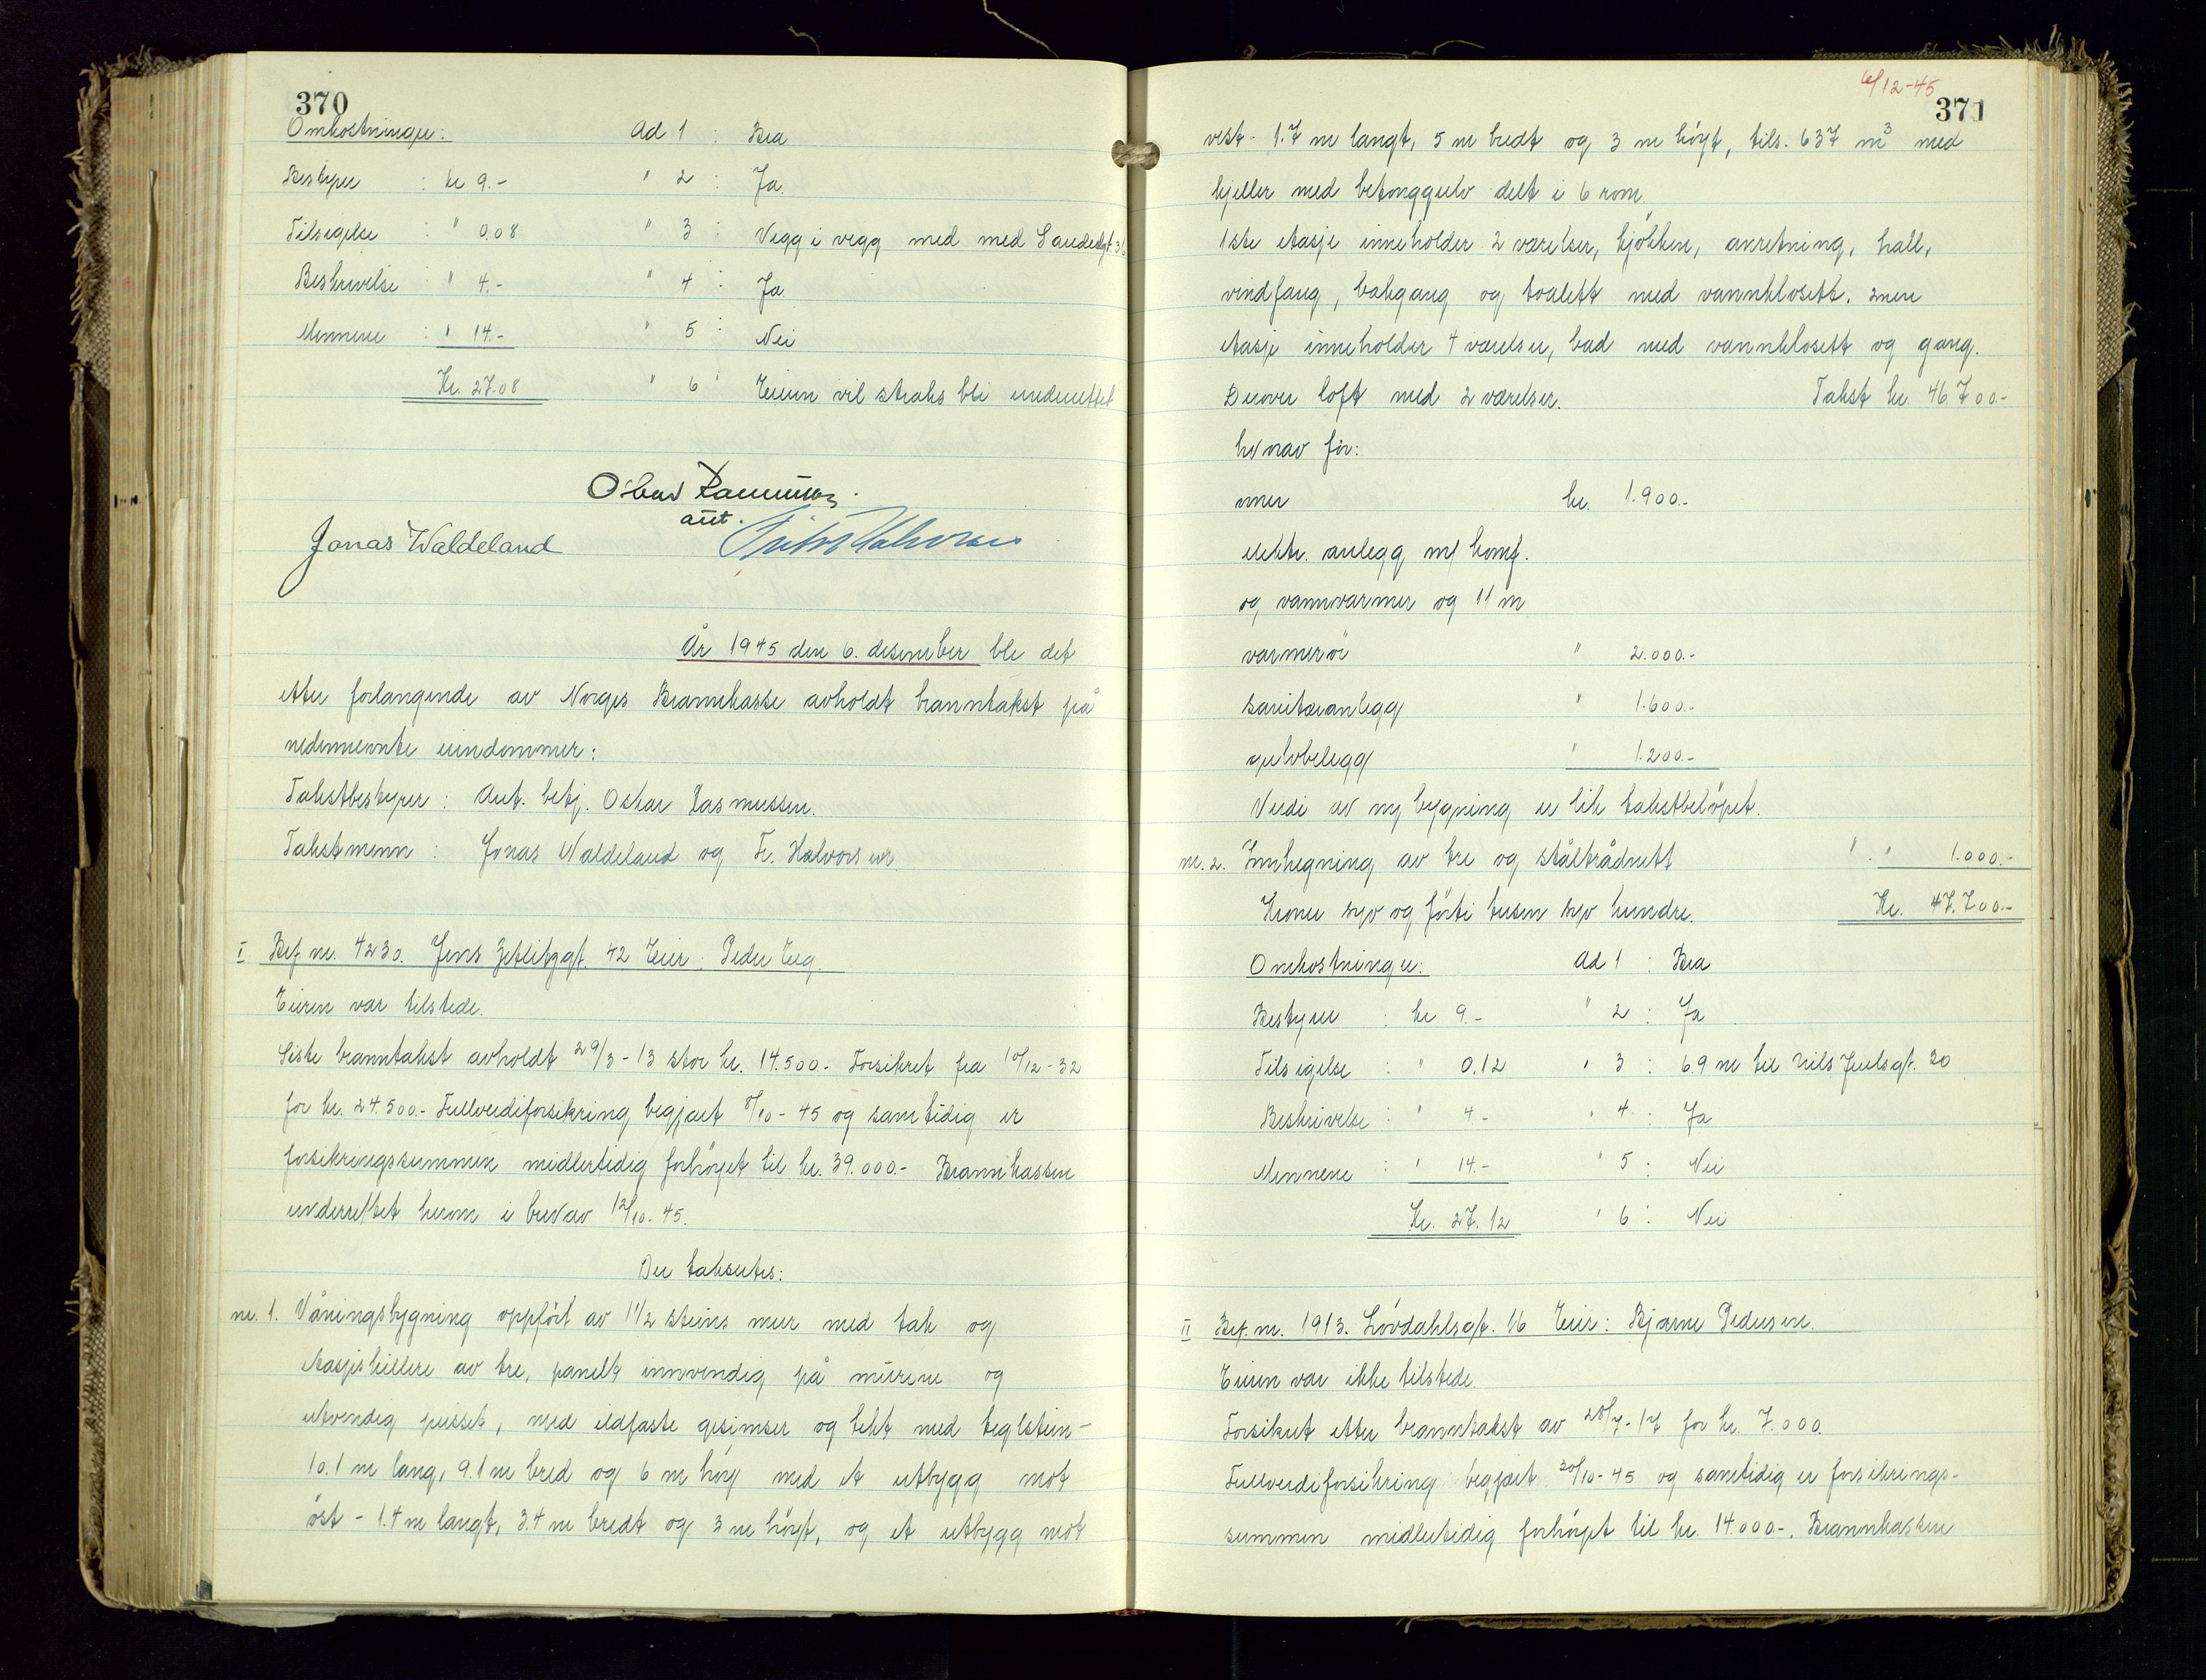 370
Omkostninger: Ad 1 : Bra
Bestyrer : kr 9.- " 2 : Ja.
Tilsigelse : " 0.08 " 3 : Vegg i vegg med med Sandedgt. 36
Beskrivelse : " 4.- " 4 : Ja
Mennene : " 14.- " 5 : Nei
Kr. 27.08 " 6 : Eieren vil straks bli underrettet
Oskar Rasmussen
aut.
Jonas Waldeland
År 1945 den 6. desember ble det
etter forlangende av Norges Brannkasse avholdt branntakst på
nedennevnte eiendommer:
Takstbestyrer : Aut. betj. Oskar Rasmussen.
Takstmenn : Jonas Waldeland og Fr. Halvorsen.
I Bef. nr. 4230. Jens Zetlitzgt. 42 Eier : Peder Eeg.
Eieren var tilstede.
Siste branntakst avholdt 29/3-13 stor kr. 14.500.- Forsikret fra 10/12-32
for kr. 24.500.- Fullverdiforsikring begjært 8/10-45 og samtidig er
forsikringssummen midlertidig forhöyet til kr. 39.000.- Brannkassen
underrettet herom i brev av 12/10.45.
Der takseres:
nr. 1. Våningsbygning oppfört av 1 1/2 steins mur med tak og
etasjeskillere av tre, panelt innvendig på murene og
utvendig pusset, med ildfaste gesimser og tekt med teglstein -
10.1 m lang, 9.1 m bred og 6 m höy med et utbygg mot
öst - 1.4 m langt, 3.4 m bredt og 3 m höyt, og et utbygg mot
6/12-45
371
vest - 1.7 m langt, 5 m bredt og 3 m höyt, tils. 637 m³ med
kjeller med betonggulv delt i 6 rom.
1ste etasje inneholder 2 værelser, kjökken, anretning, hall,
vindfang, bakgang og toalett med vannklosett. 2nen
etasje inneholder 4 værelser, bad med vannklosett og gang.
Derover loft med 2 værelser. Takst kr. 46.700.-
hvorav for:
ovner kr. 1.900.-
elektr. anlegg m/ komf.
og vannvarmer og 11 m
varmerör " 2.000.-
sanitæranlegg " 1.600.-
gulvbelegg " 1.200.-
Verdi av ny bygning er lik takstbelöpet.
nr. 2. Innhegning av tre og ståltrådnett " " 1.000.-
Kroner syv og förti tusen syv hundre. Kr. 47.700.-
Omkostninger: Ad 1 : Bra
Bestyrer : kr 9.- " 2 : Ja
Tilsigelse : " 0.12 " 3 : 6.9 m til Nils Juelsgt. 30
Beskrivelse : " 4.- " 4 : Ja
Mennene : " 14.- " 5 : Nei
Kr. 27.12 " 6 : Nei
II Bef. nr. 1913. Lövdahlsgt. 16 Eier : Bjarne Pedersen.
Eieren var ikke tilstede.
Forsikret etter branntakst av 28/7-17 for kr. 7.000.
Fullverdiforsikring begjært 30/10-45 og samtidig er forsikrings-
summen midlertidig forhöyet til kr. 14.000.-. Brannkassen